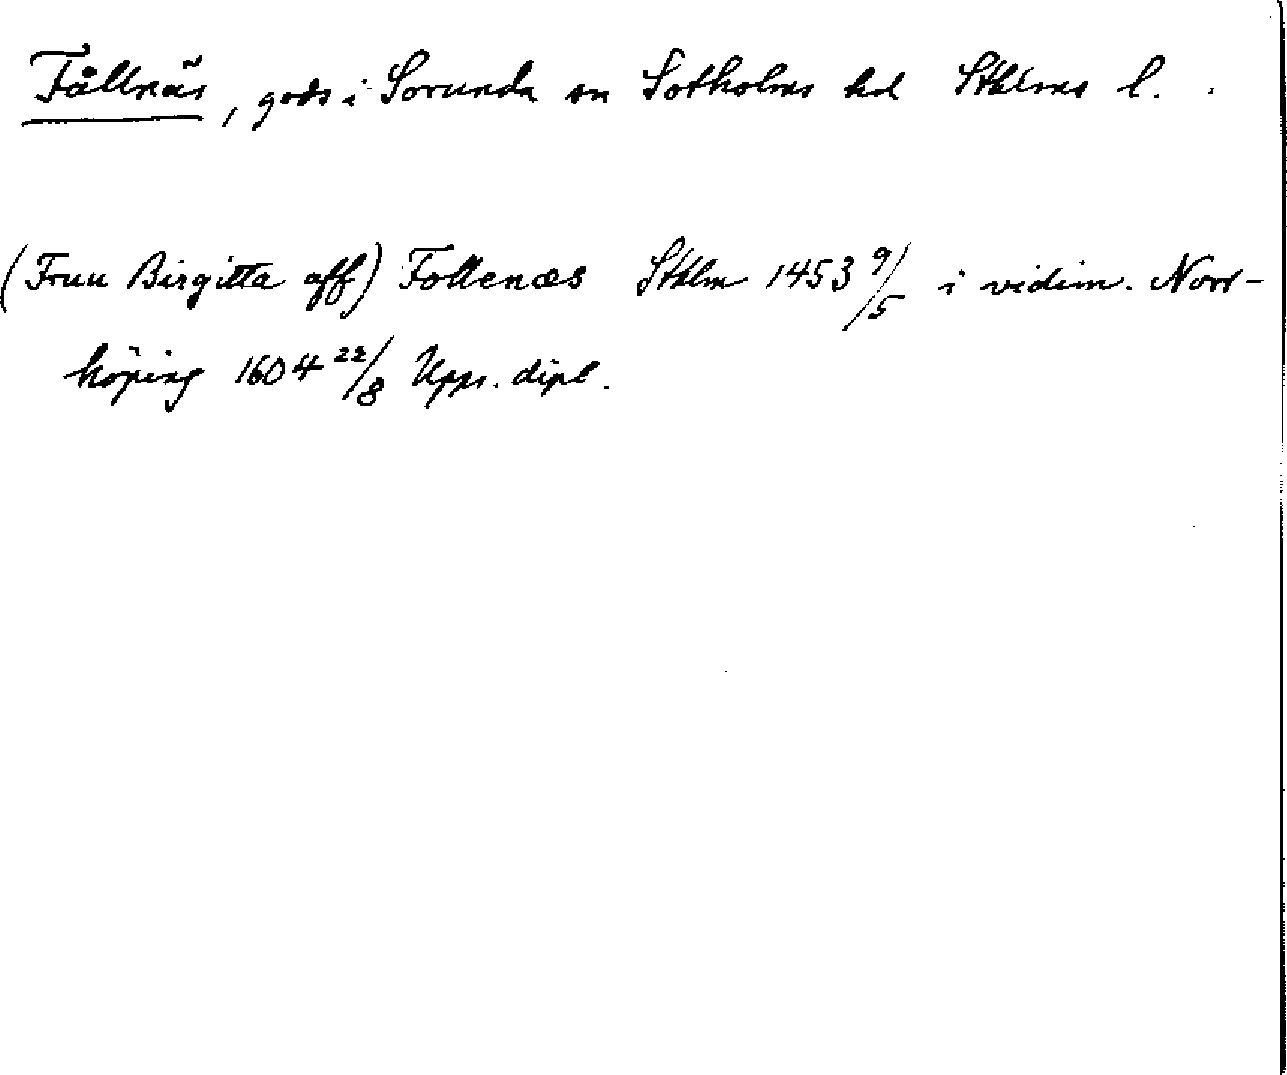 Fållnäs, gods i Sorunda sn Sotholms hd Sthlms l.
(Fruu Birgitta aff) Follenæs Sthlm 1453 9/5 i vidim. Norr-
köping 1604 22/8 Upps. dipl.